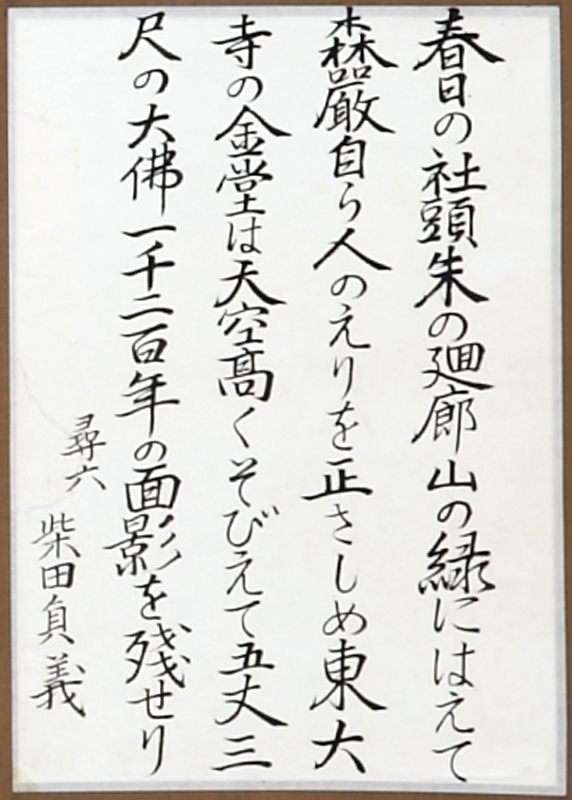 春日の社頭朱の廻廊山の緑にはえて
森厳自ら人のえりを正さしめ東大
寺の金堂は天空髙くそびえて五丈三
尺の大佛一千二百年の面影を残せり
尋六 柴田貞義